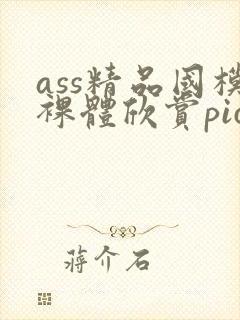 ass精品國模
裸體欣賞pic
蔣介石